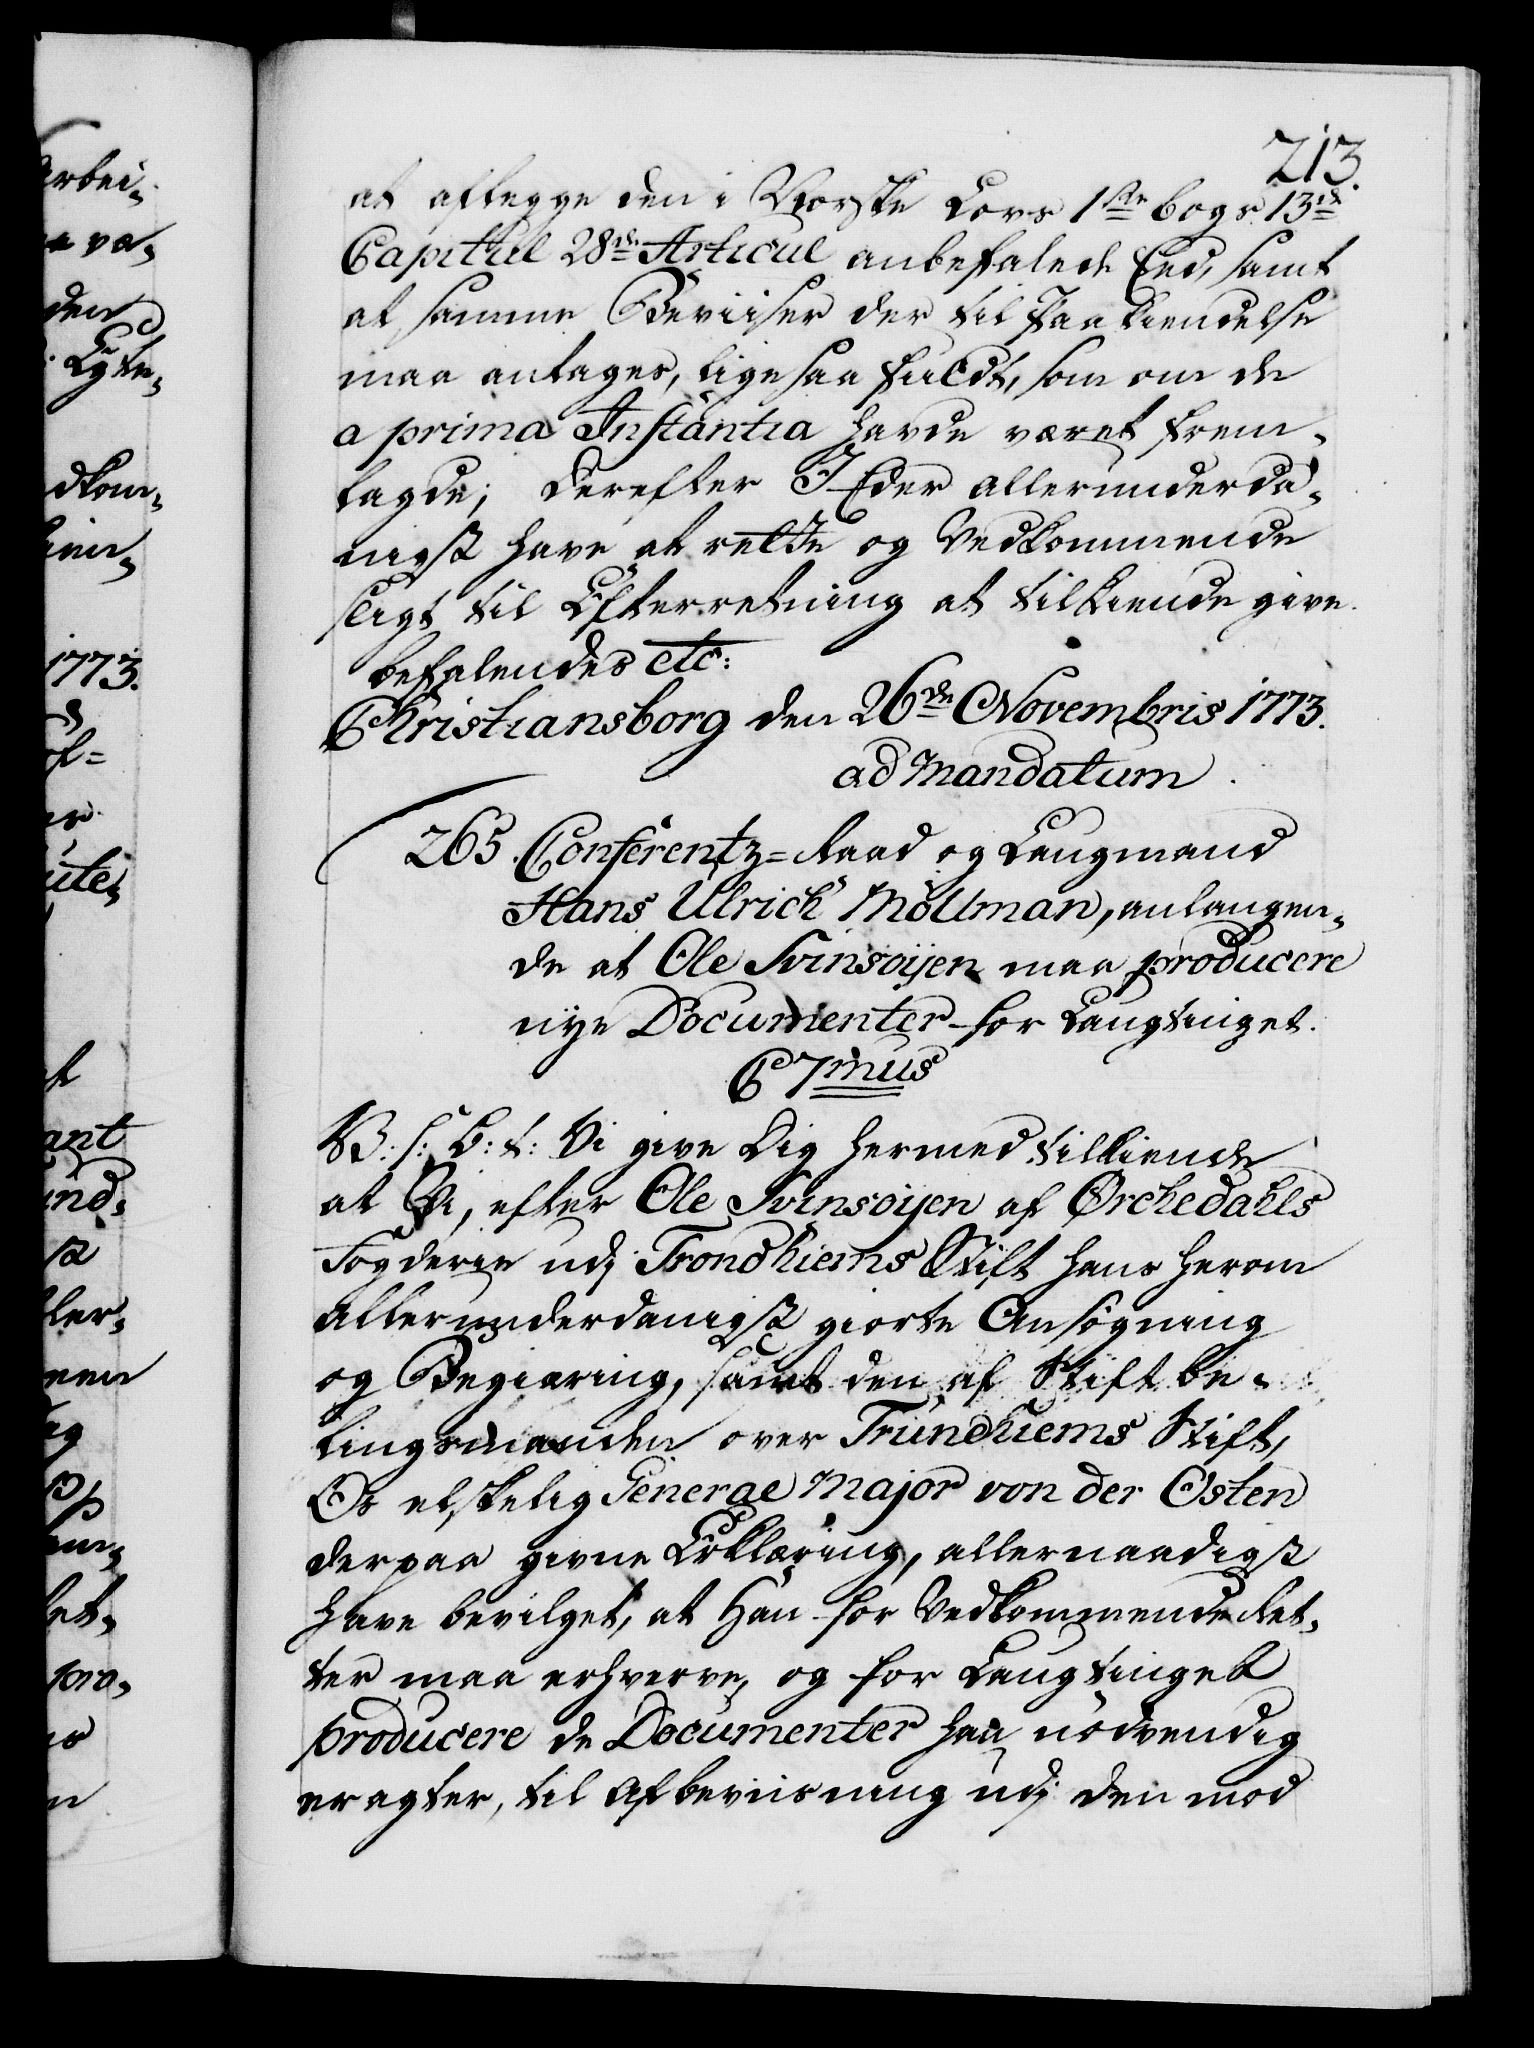 213.
at aflegge den i Norske Lovs 1ste bogs 13de
Capitul 28de Articul anbefalede Eed, samt
at samme Beviiser der til Paakiendelse
maa antages, ligesaa fuldt, som om de
a prima Instantia havde været frem-
lagde; derefter I Eder allerunderda-
nigst have at rette og Vedkommende
sligt til Efterretning at tilkiende give.
befalendes etc:
Christiansborg den 26de Novembris 1773.
ad Mandatum.
265. Conferentz=Raad og Laugmand
Hans Ulrich Möllman, anlangen-
de at Ole Svinsöijen maa producere
nye Documenter for Laugtinget.
C 7mus
V: S: G: t: Vi give Dig hermed tilkiende
at Vi, efter Ole Svinsöijen af Ørchedahls
Fogderie udj Trondhiems Stift hans herom
allerunderdanigst giorte Ansögning
og Begiæring, samt den af Stiftbe-
lingsmanden over Trundhiems Stift,
Os elskelig General Major von der Osten
derpaa givne Erklæring, allernaadigst
have bevilget, at Han for Vedkommende Ret-
ter maa erhverve, og for Laugtinget
producere de Documenter han nödvendig
eragter, til Afbeviisning udj den mod
arbei-
den
1773.